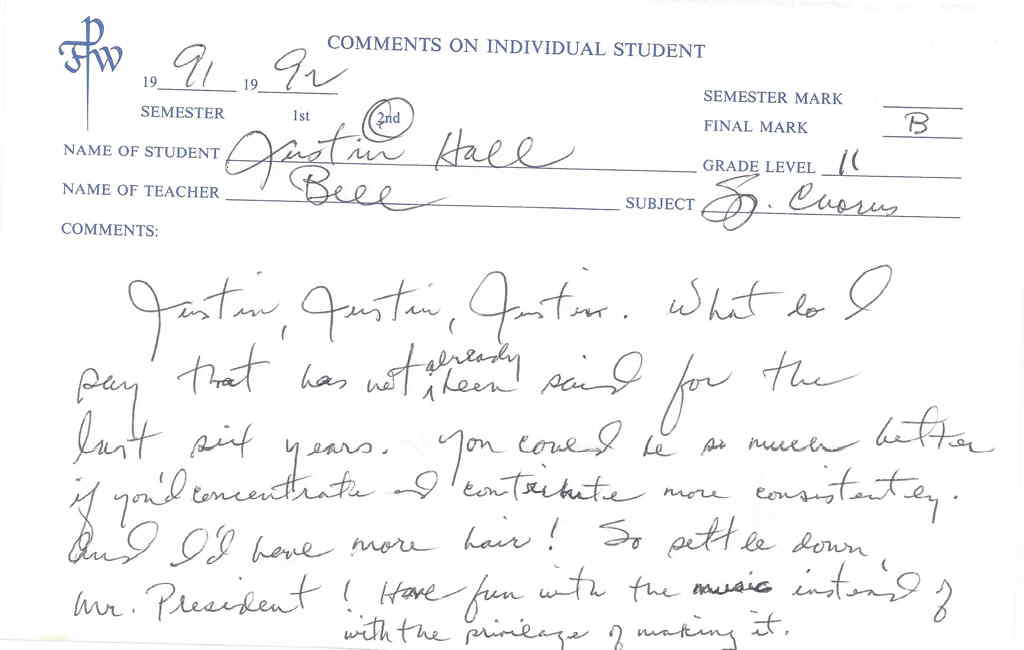 FPW
COMMENTS ON INDIVIDUAL STUDENT
19 91 19 92
SEMESTER 1st 2nd
SEMESTER MARK
FINAL MARK B
NAME OF STUDENT Justin Hall
GRADE LEVEL 11
NAME OF TEACHER Bell
SUBJECT Sr. Chorus
COMMENTS:
Justin, Justin, Justin. What do I
say that has not already been said for the
last six years. You could be so much better
if you'd concentrate and contribute more consistently.
And I'd have more hair! So settle down,
Mr. President! Have fun with the music instead of
with the privilage of making it.